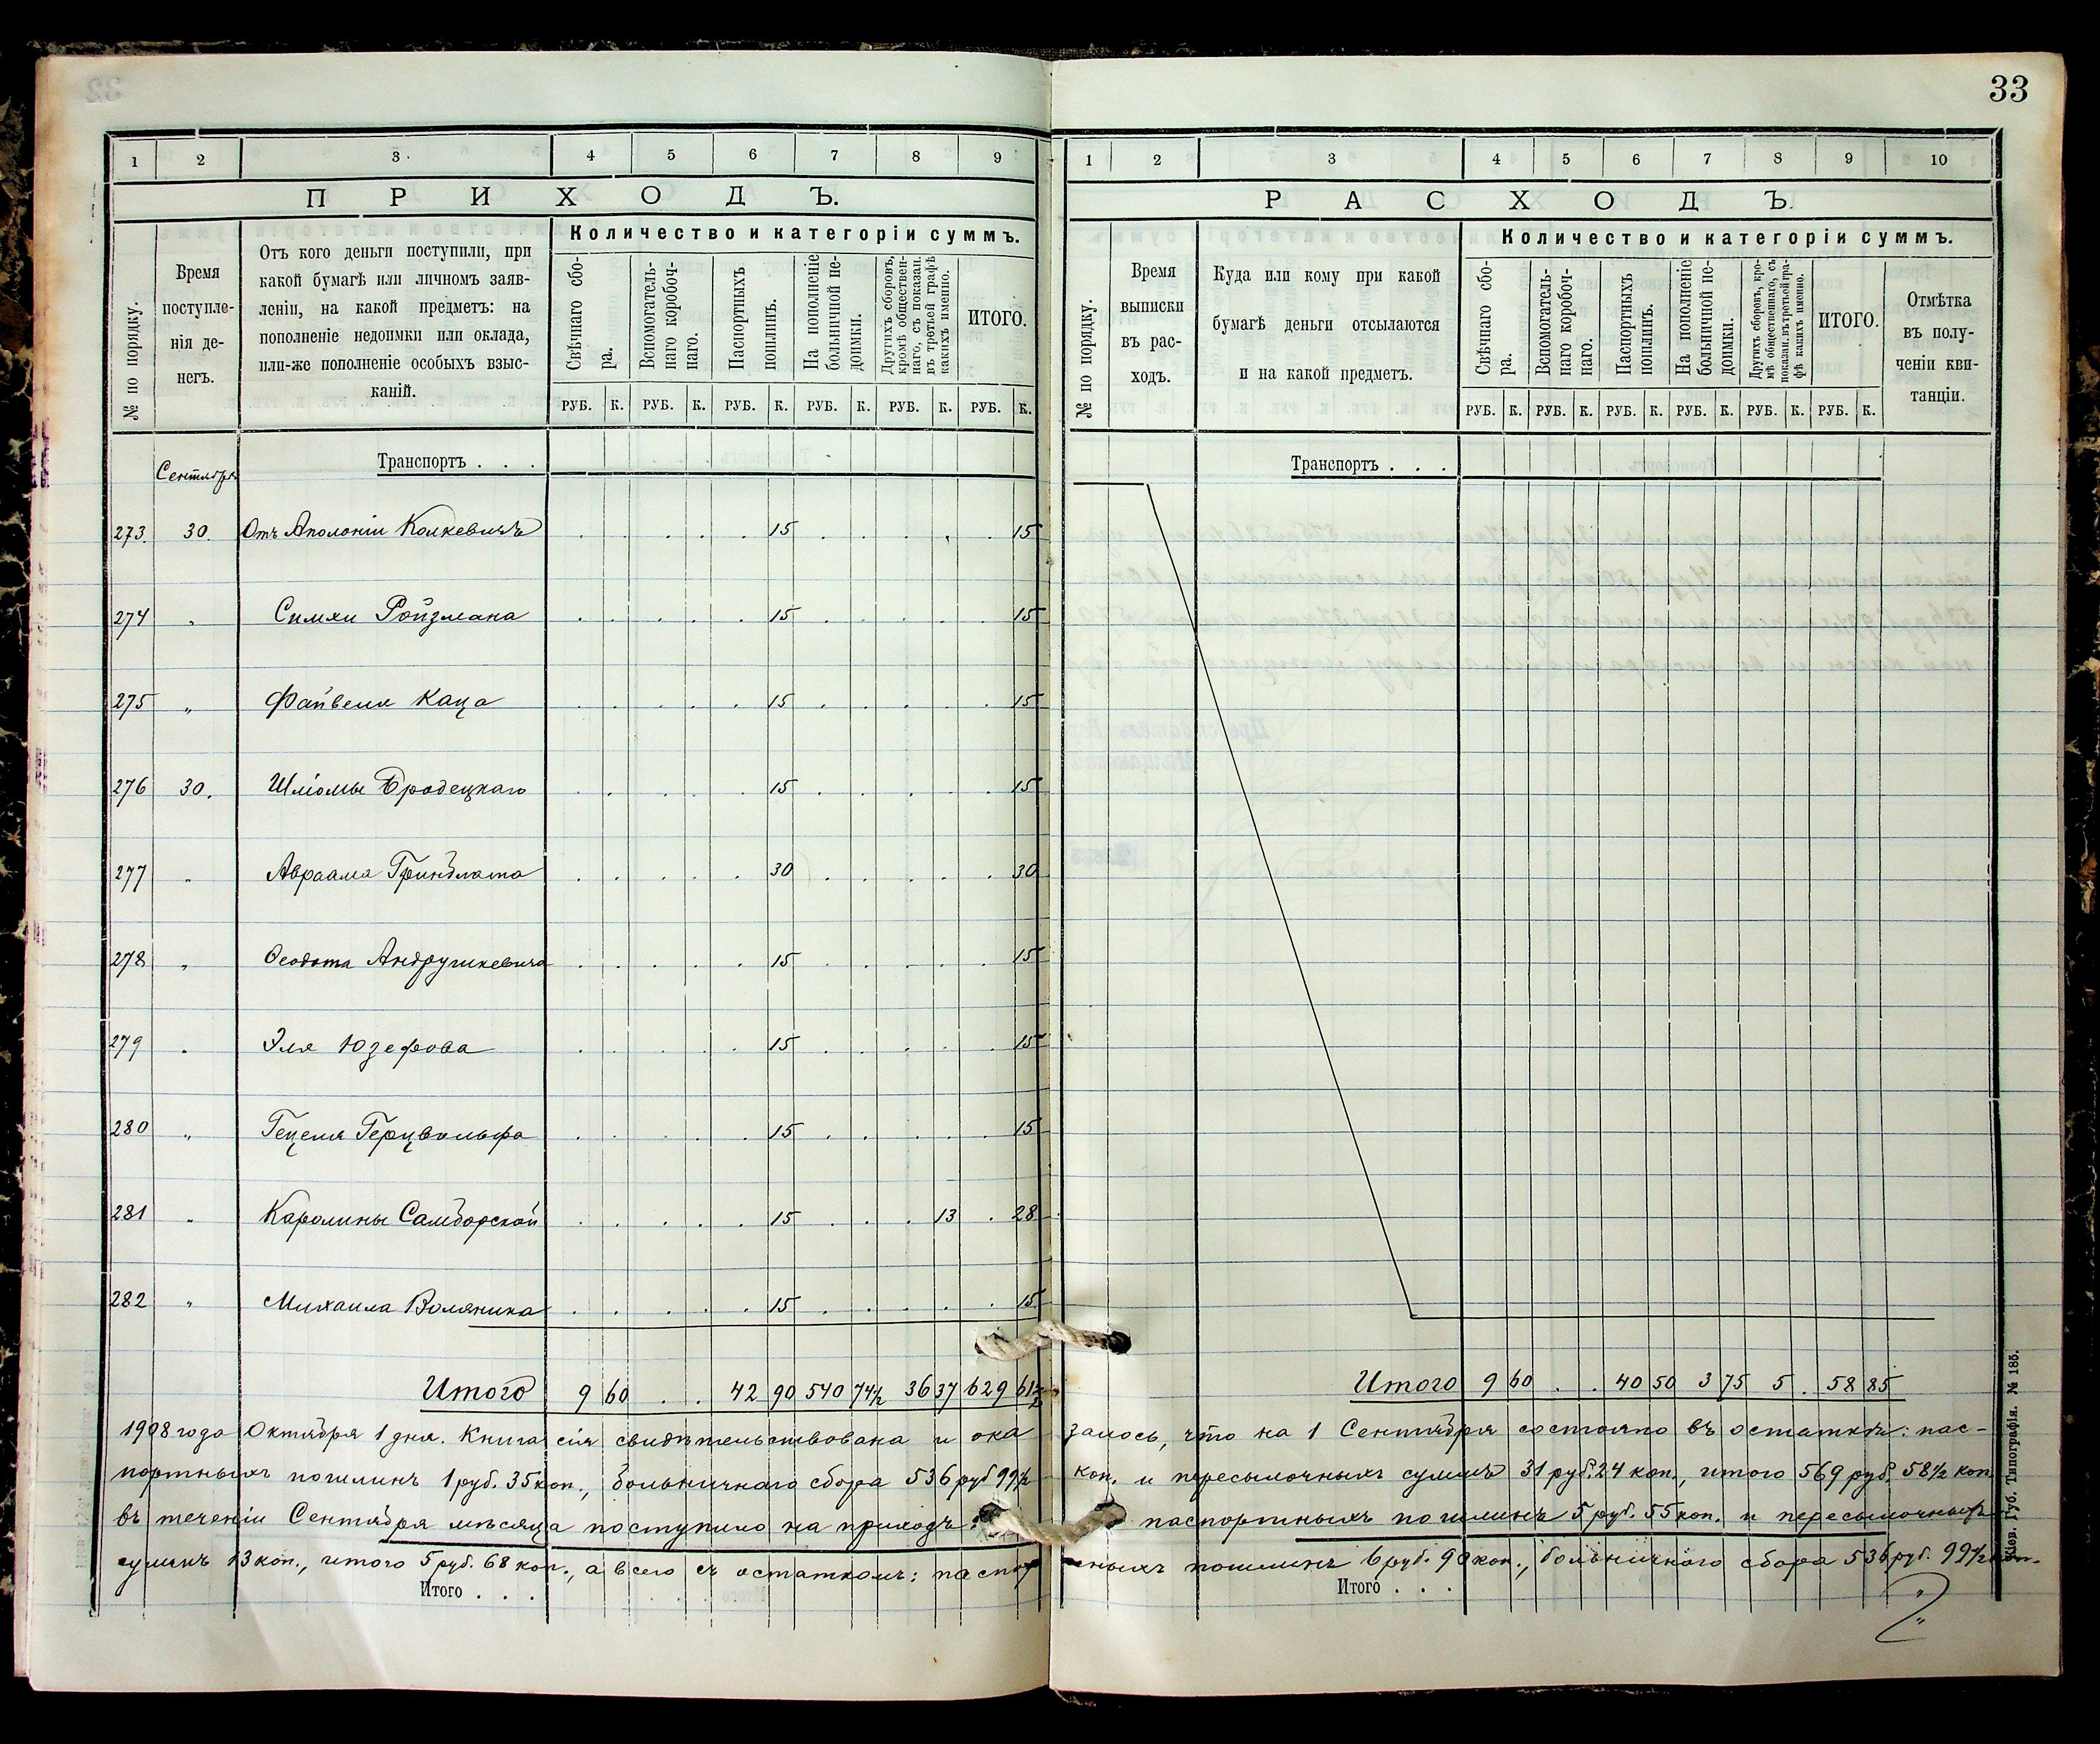 33
1 2 3 4 5 6 7 8 9
ПРИХОДЪ.
№ по порядку.
Время поступле-
нія де-
негъ.
Отъ кого деньги поступили, при
какой бумагѣ или личномъ заяв-
леніи, на какой предметъ: на
пополненіе недоимки или оклада,
или-же пополненіе особыхъ взыс-
каній.
Количество и категоріи суммъ.
Свѣчнаго сбо-
ра.
Вспомогатель-
наго коробоч-
наго.
Паспортныхъ
пошлинъ.
На пополненіе
больничной не-
доимки.
Другихъ сборовъ,
кромѣ обществен-
наго, съ показан.
въ третьей графѣ
какихъ именно.
ИТОГО.
РУБ. К. РУБ. К. РУБ. К. РУБ. К. РУБ. К. РУБ. К.
Транспортъ . . .
Сентября
273. 30. Отъ Аполоніи Колкевичъ 15 15
274 " Симхи Ройзмана 15 15
275 " Файвеля Каца 15 15
276 30. Шлiомы Бродецкаго 15 15
277 " Авраама Гринблата 30 30
278 " Ѳеодота Андрушкевича 15 15
279 " Эля Юзефова 15 15
280 " Гецеля Герцвольфа 15 15
281 " Каролины Самборской 15 13 28
282 " Михаила Воляника 15 15
Итого 9 60 . . 42 90 540 74½ 36 37 629 61½
1 2 3 4 5 6 7 8 9 10
РАСХОДЪ.
№ по порядку.
Время
выписки
въ рас-
ходъ.
Куда или кому при какой
бумагѣ деньги отсылаются
и на какой предметъ.
Количество и категоріи суммъ.
Свѣчнаго сбо-
ра.
Вспомогатель-
наго коробоч-
наго.
Паспортныхъ
пошлинъ.
На пополненіе
больничной не-
доимки.
Другихъ сборовъ, кро-
мѣ общественнаго, съ
показан. въ третьей гра-
фѣ какихъ именно.
ИТОГО.
Отмѣтка
въ полу-
ченіи кви-
танціи.
РУБ. К. РУБ. К. РУБ. К. РУБ. К. РУБ. К. РУБ. К.
Транспортъ . . .
Итого 9 60 . . 40 50 3 75 5 . 58 85
1908 года Октября 1 дня. Книга сія свидѣтельствована и ока залось, что на 1 Сентября состояло въ остаткѣ: пас-
портныхъ пошлинъ 1 руб. 35 коп., больничнаго сбора 536 руб 99½ коп. и пересылочныхъ суммъ 31 руб. 24 коп., итого 569 руб. 58½ коп
въ теченіи Сентября мѣсяца поступило на приходъ: паспортныхъ пошлинъ 5 руб. 55 коп. и пересылочныхъ
суммъ 13 коп., итого 5 руб. 68 коп., а всего съ остаткомъ: паспорт ныхъ пошлинъ 6 руб. 90 коп., больничнаго сбора 536 руб. 99½ коп.
Итого . . .
Итого . . .
Кіов. Губ. Типографія. № 185.